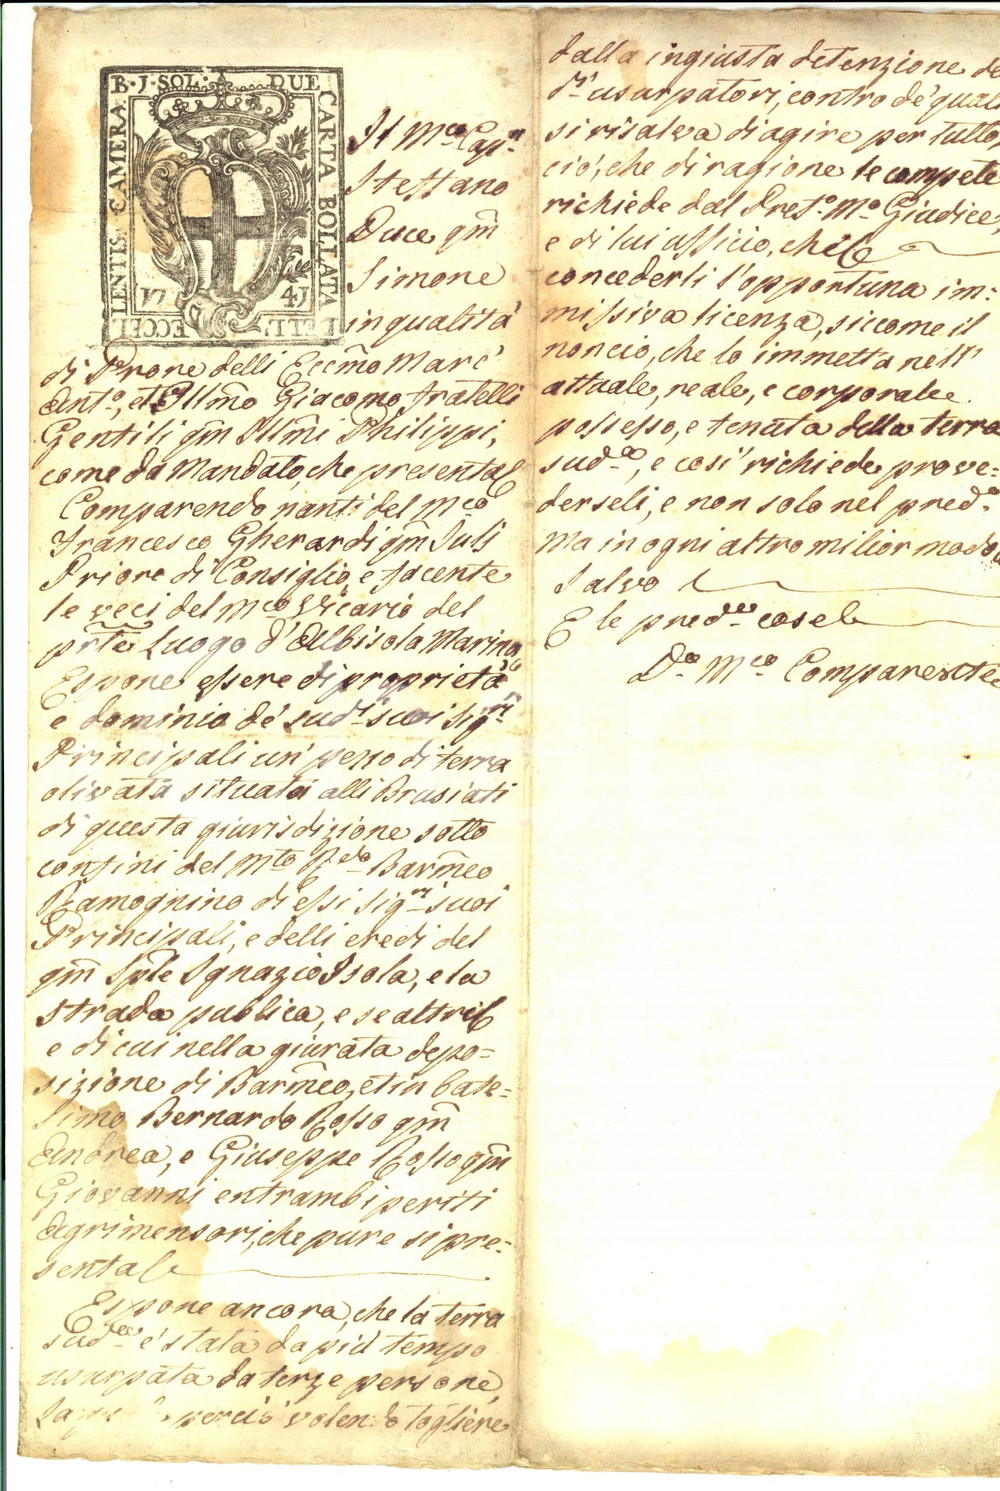 B. J. SOL. DUE
CARTA BOLLATA
DELL' ECCEL
LENTIS. CAMERA
17 41
Il Mco Capn
Steffano
Duce qm
Simone
in qualità
di Prone delli Eccmo Marc'
Anto, et Illmo Giacomo fratelli
Gentili qm Illmi Philippi,
come da Mandato, che presenta &
Comparendo nanti del Mco
Francesco Gherardi qm Julj
Priore di Consiglio, e facente
le veci del Mco Vicario del
pnte Luogo d'Albisola Marina
Espone essere di proprietà
e dominio de' sudi suoi Sigri
Principali un pezzo di terra
olivata situata alli Brusiati
di questa giurisdizione sotto
confini del Mto Rdo Barmeo
Ramognino di essi Sigri suoi
Principali, e delli eredi del
qm Sple Ignazio Isola, e la
strada publica, e se altri &
e di cui nella giurata depo=
sizione di Barmeo, et in bate=
simo Bernardo Rosso qm
Andrea, e Giuseppe Rosso qm
Giovanni entrambi periti
Agrimensori, che pure si pre=
senta &
Espone ancora, che la terra
suda è stata da più tempo
usurpata da terze persone,
perciò volendo togliere
dalla ingiusta detenzione de
di usurpatori, contro de' quali
si riserva di agire per tutto
ciò, che di ragione le compete
richiede dal Preto Mo Giudice,
e di lui ufficio, che &
concederli l'opportuna im=
missiva licenza, siccome il
noncio, che lo immetta nell'
attuale, reale, e corporale
possesso, e tenuta della terra
suda, e così richiede prove=
derseli, e non solo nel predo
Ma in ogni altro milior modo
Salvo &
E le prede cose &
Do Mco Comparente